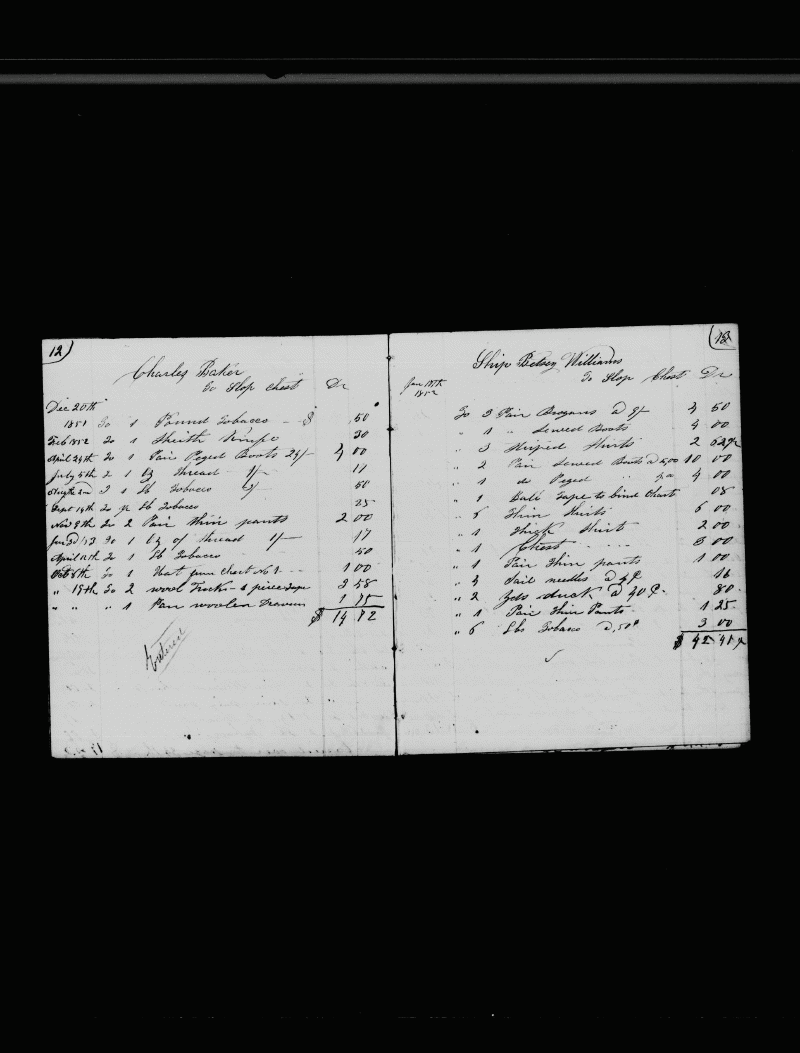 12
Charles Baker
To Slop Chest Dr
Dec 20th
1851 To 1 Pound Tobacco - $ .50
Feb 1852 To 1 Sheith Knife 30
April 24th To 1 Pair Peged Boots 24/- 4 00
July 5th To 1 of Thread 1/- 17
1 lb Tobacco 50
Sept 14th To lb Tobacco 25
Nov 9th To 2 Pair thin pants 2 00
Jan 3d /53 To 1 of thread 1/- 17
April 12th To 1 lb Tobacco 50
Oct 8th To 1 Hat from Chest No 1 1 00
" 19th To 2 wool Frocks - 3 58
" " " 1 Pair woolen 1 75
$ 14 72
Entered
13
Ship Betsey Williams
To Slop Chest Dr
Jan 18th
1852
To 3 Pair Brogans a 9/- 4 50
" 1 " Sewed Boots 4 00
" 3 Striped Shirts 2 62½
" 2 Pair Sewed Boots a 5,00 10 00
" 1 do Peged " 4 00
" 1 Ball Tape to bind Charts 08
" 6 Thin Shirts 6 00
" 1 Thick Shirt 2 00
" 1 Chest 3 00
" 1 Pair Thin pants 1 00
" 4 Sail needles a 4¢ 16
" 2 Yds duck a 40¢ 80
" 1 Pair Thin Pants 1 25
" 6 Lbs Tobacco a ,50¢ 3 00
$ 42 41½